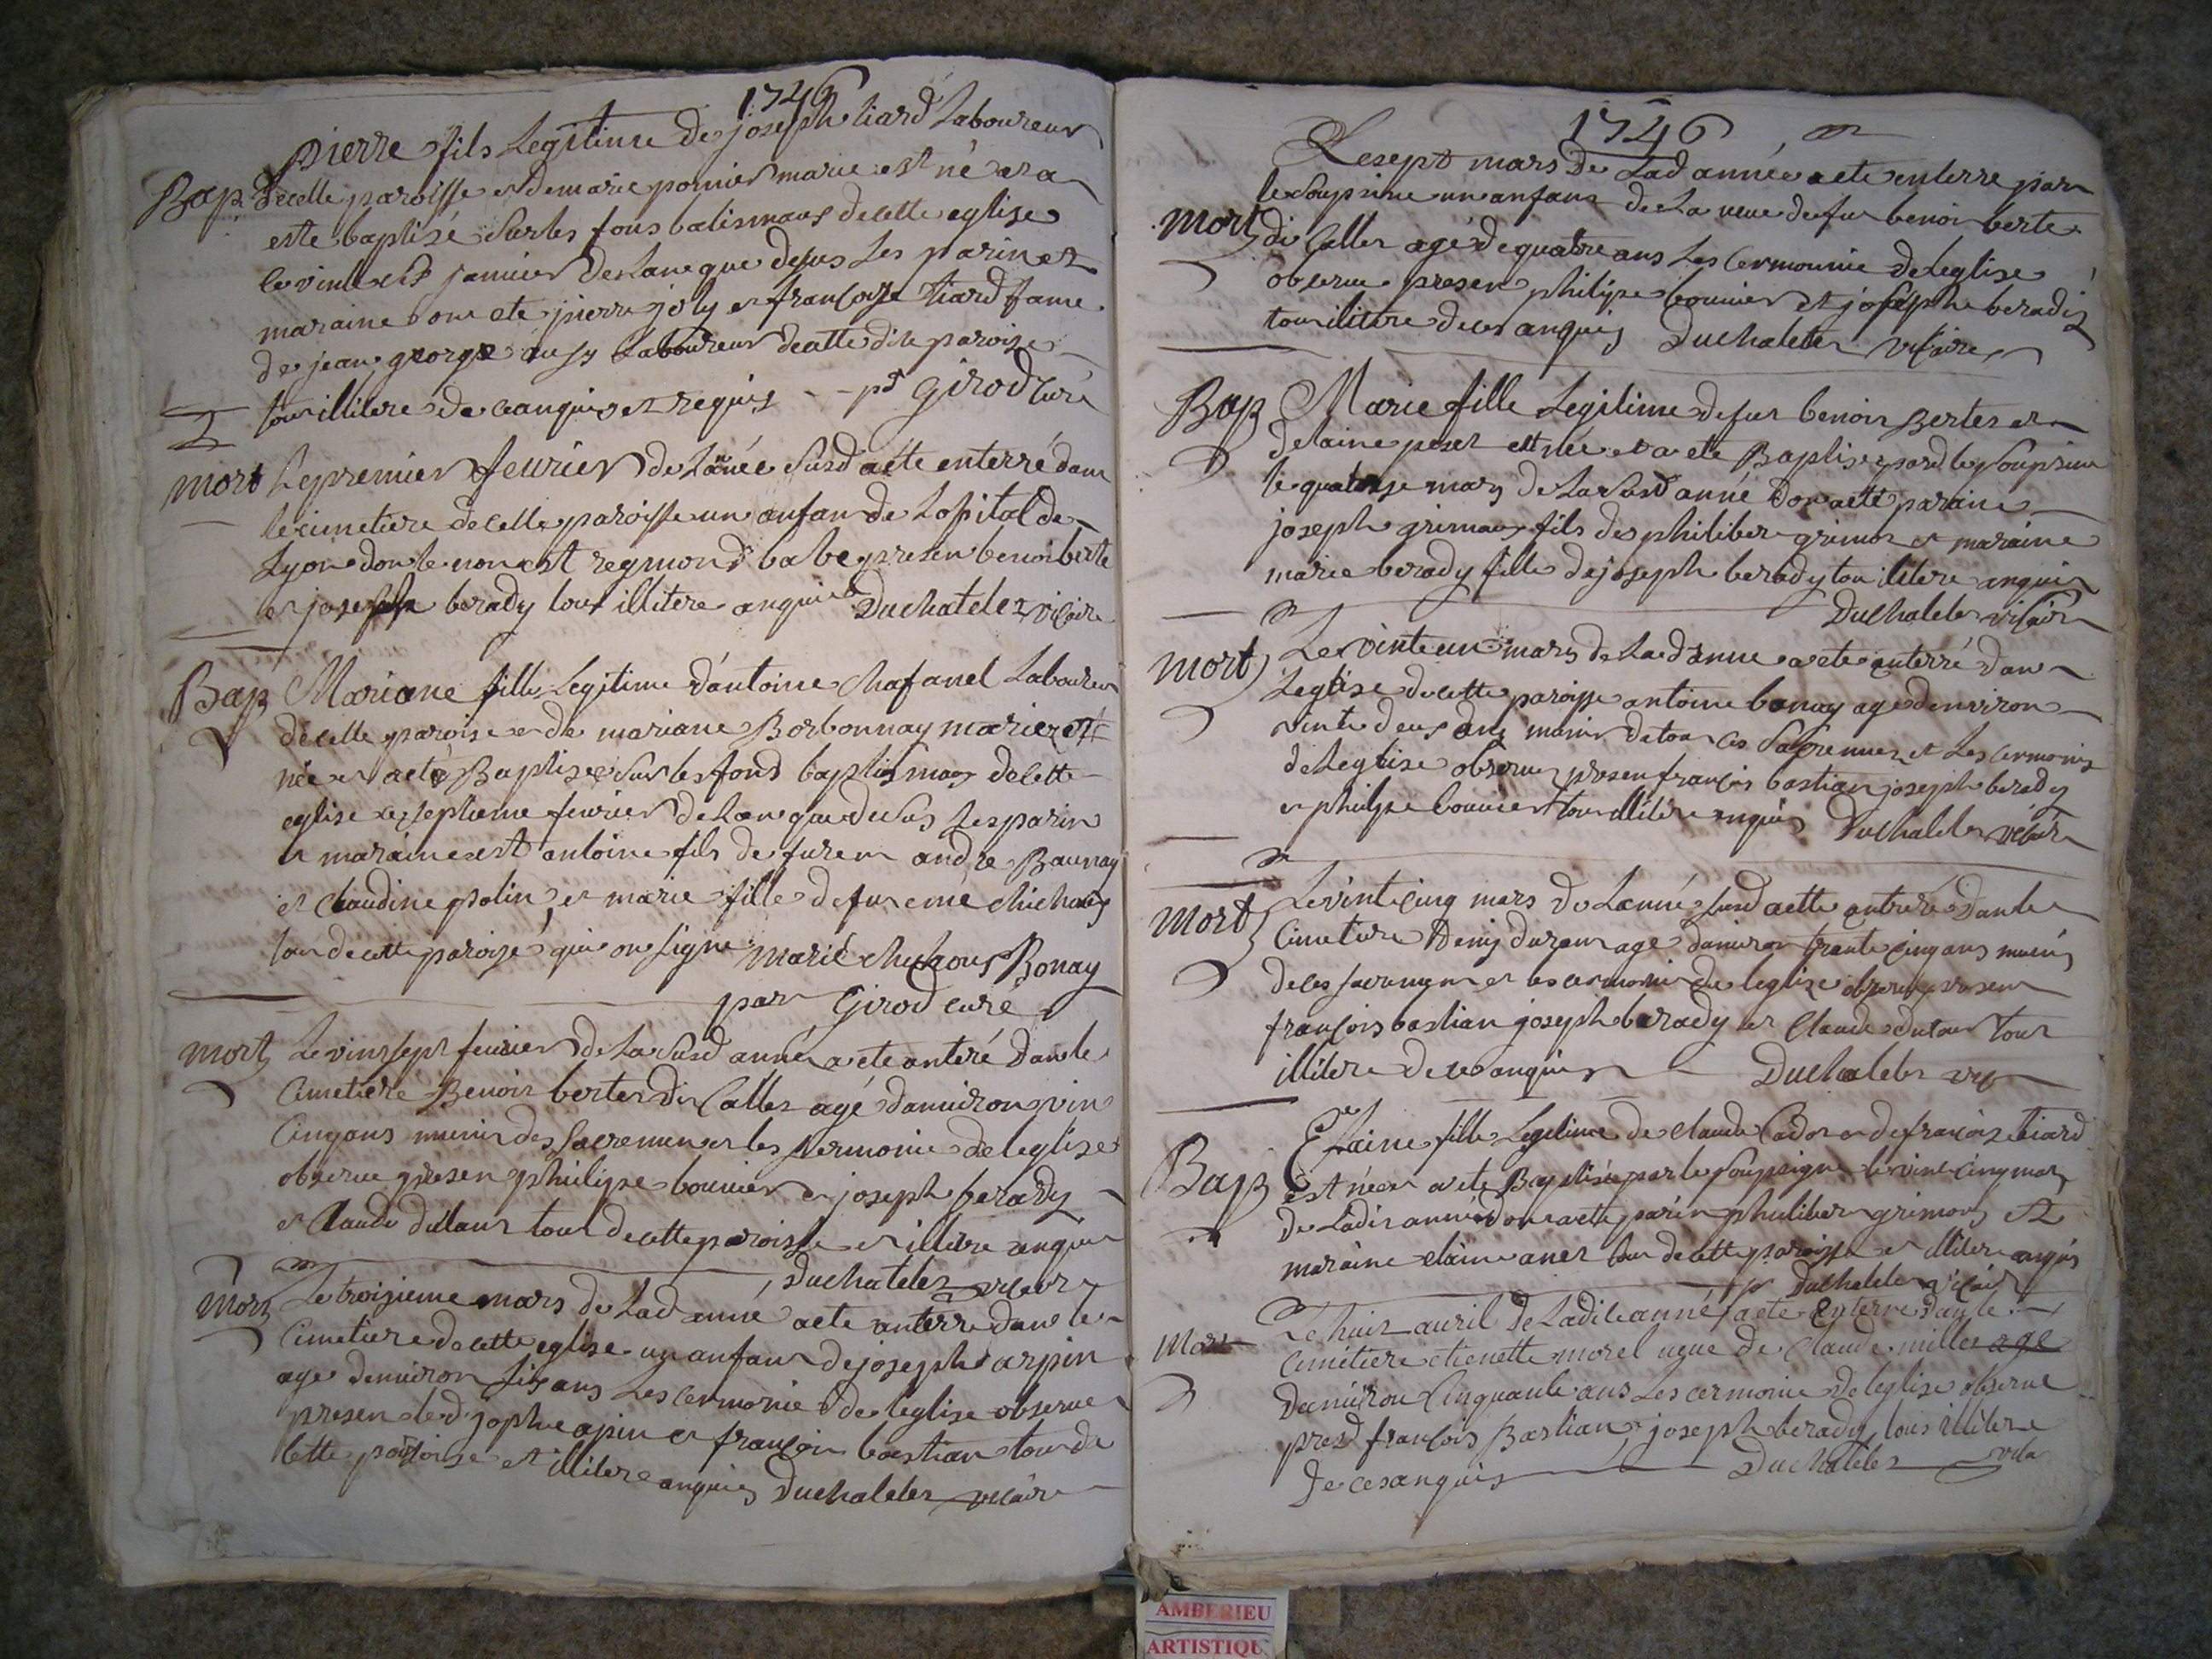 1746
pierre fils Legitime de joseph tiard Laboureur
Bap
decette paroisse et de marie pornier marie est né et a
este baptisé sur les fons batismaus de cette eglise
le vint janvier de Lane que desus Les parin et
maraine on ete pierre joly et francoise tiard fame
de jean george ausy Laboureur de cette dite paroise
tous illitere de ce anquis et requis -- pr Girod curé
mort
Le premier feurier de Lanée susd aété enterré dans
le cimetiere de cette paroisse un anfan de Lopital de
Lyon don le nom est regmond babe presen benoi berte
et joseph berady tous illitere anquis Duchatelet vicaire
Bap
Mariane fille Legitime dantoine Chafanel Laboureur
de cette paroise et de mariane Borbonnay mariez est
née et aeté Baptisee sur les fond baptismaus de cette
eglise le septieme feurier de Lane que desus Les parin
et maraine est antoine fils de andre Baunay
et Claudine polin, et marie fille de fu eme chichous
tous de cette paroise qui on signe marie chichous Bonay
par Girod curé
mort
Le vint sept feurier de La susd année a ete anteré dans le
Cimetiere Benoit bertet di Callet agé danuiron vin
Cinq ans muni des sacremens et les sermonie de leglise
obserue presen philipe bouuier et joseph berady
et Claude dutour tous de cette paroisse et illitere anquis
Duchatelet vicaire
Mort
Le troisieme mars de Lad anné aete anterre dans le
Cimetiere de cette eglise un anfan de joseph arpin
age denuiron six ans Les cermonie de leglise obserue
presen led josphe apin et francois bastian tous de
cette paroise et illitere anquis Duchatelet vicaire
1746
Le sept mars de Lad année a ete enterre par
le soupsine un anfans de La ueue de fu benoi berte
mort
di Callet agé de quatre ans Les Cermounie de leglise
obserue presen philipe bouuier et joseph berady
tous ilitere de ces anquis Duchatelet vicaire
Bap
Marie fille Legitime de fu benoit Bertet et
delaine peset est née et a ete Baptisee par le soupsine
le quatorse mars de La susd année don aété paraine
joseph grimaus fils de philiber grimos et maraine
marie berady fille de joseph berady tous ilitere anquis
Duchatelet vicaire
mort
Le vinteun mars de Lad anne a ete enterré dans
Leglise de cette paroisse antoine bonay age denviron
vinte deus ans munis de tous ces sacremens et Les cermonis
de Leglise obserue presen francois bastian joseph berady
et philipe bouuier tous illitere anquis Duchatelet vicaire
mort
Le vint cinq mars de Lanné susd aette anterré dans le
Cimetiere Denis age danuiron trante cinq ans munis
de ces sacremens et les cermonie de leglise obserue presen
francois bastian joseph berady et Claude dutour tous
illitere de ces anquis Duchatelet vic
Elaine fille Legitime de Claude Cador et de francoise tiard
Bap
est née et a ete Baptisée par le soupsigne le vint cinq mars
de La dit année don aete parin philiber grimos et
maraine elaine anet tous de cette paroisse et illitere anquis
Duchatelet vicair
Le huit auril de La dite anné a ete enterre dans le
Mort
Cimétiere etienette morel ueue de Claude millet age
Danuiron Cinquante ans Les cermonie de leglise obserue
presd francois Bastian joseph berady, tous illitere
de ces anquis Duchatelet vica
AMBERIEU
ARTISTIQU